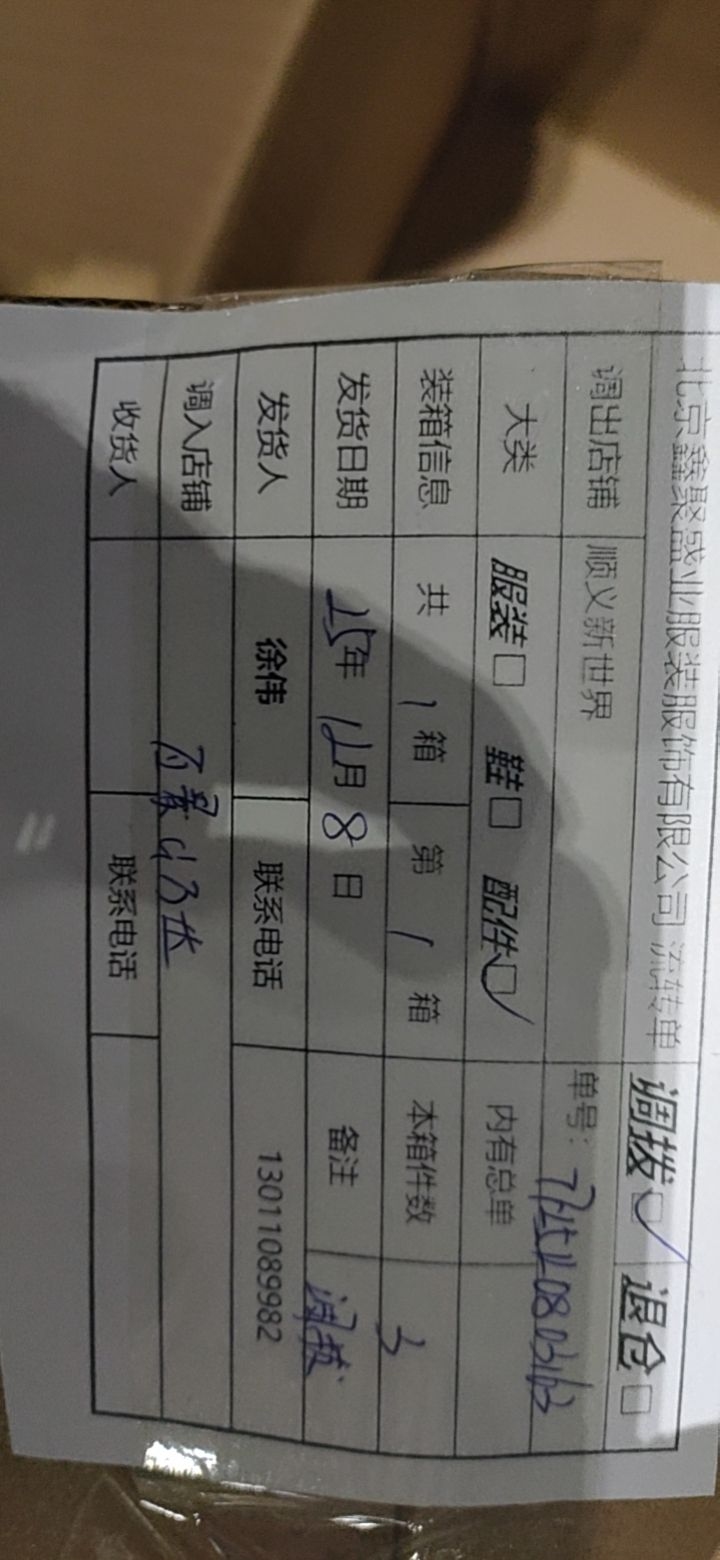 北京鑫聚盛业服装服饰有限公司 流转单 调拨□✓ 退仓□
调出店铺 顺义新世界 单号：
大类 服装□ 鞋□ 配件□✓ 内有总单
装箱信息 共 1 箱 第 1 箱 本箱件数 3
发货日期 25年 12月 8日 备注 调拨
发货人 徐伟 联系电话 13011089982
调入店铺
收货人 联系电话